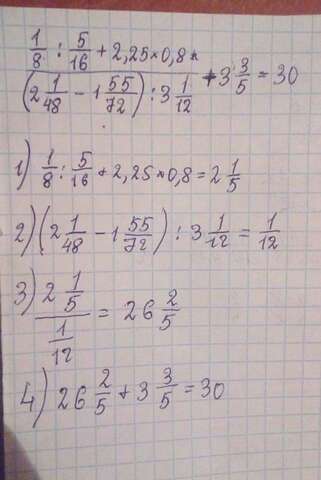 1/8 : 5/16 + 2,25 × 0,8 *
(2 1/48 − 1 55/72) : 3 1/12 + 3 3/5 = 30
1) 1/8 : 5/16 + 2,25 × 0,8 = 2 1/5
2) (2 1/48 − 1 55/72) : 3 1/12 = 1/12
3) 2 1/5 / 1/12 = 26 2/5
4) 26 2/5 + 3 3/5 = 30